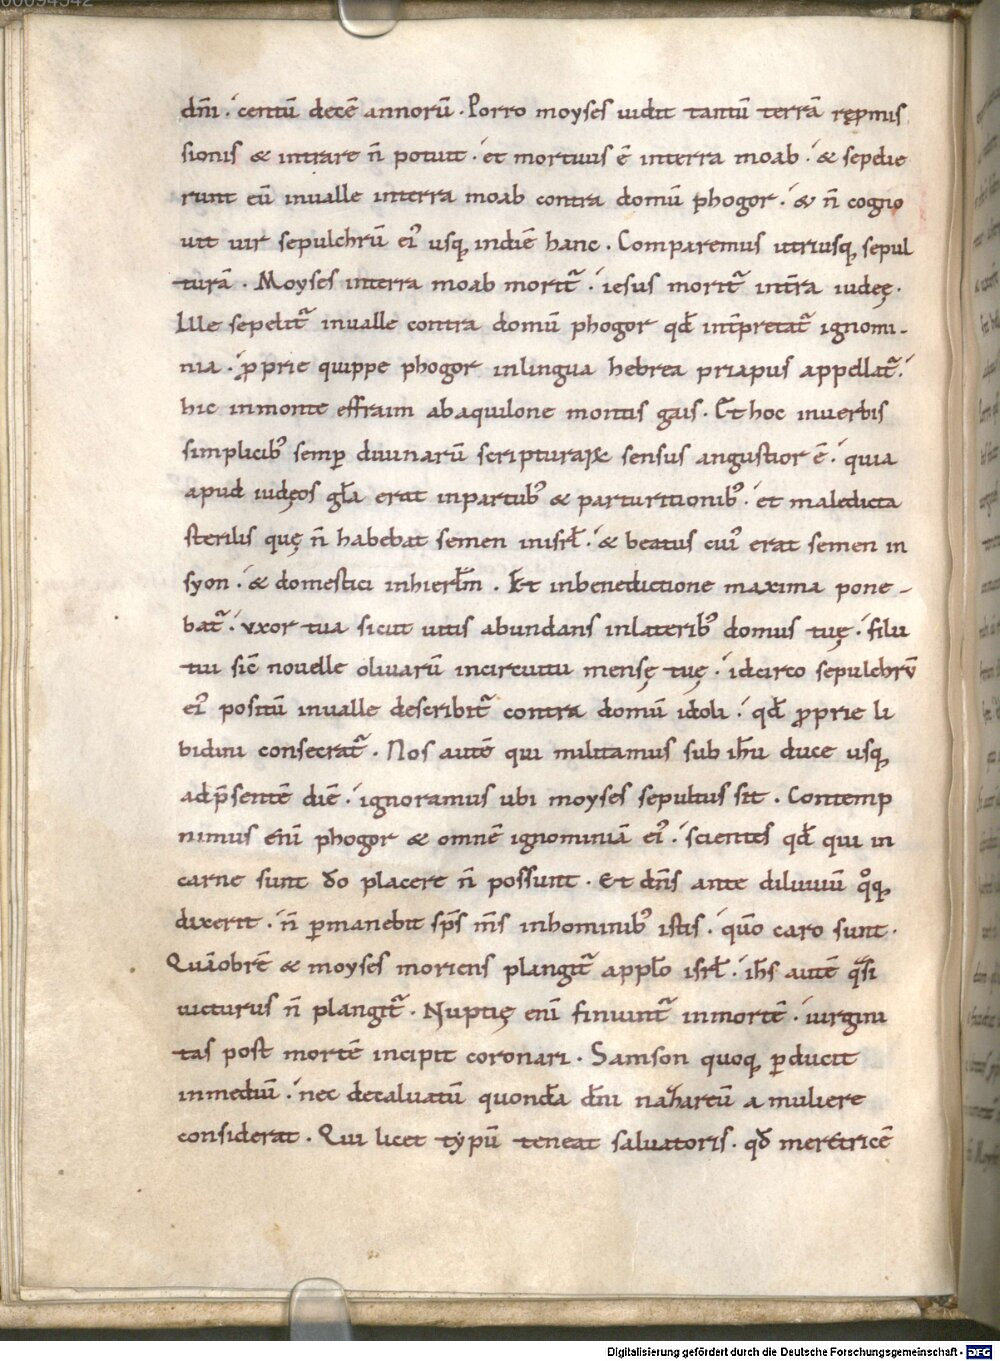 dñi . centū decē annorū . Porro moyses uidit tantū terrā rep̱mis
sionis & intrare ñ potuit . et mortuus ē interra moab . & sepelie
runt eū inualle interra moab contra domū phogor . & ñ cogno
uit uir sepulchrū ei᾽ usq; indiē hanc . Comparemus utriusq; sepul
turā . Moyses interra moab morit᷑ . iesus morit᷑ int̄ra iudeę .
Ille sepelit᷑ inualle contra domū phogor qđ int̄pretat᷑ ignomi-
nia . ꝓprie quippe phogor inlingua hebrea priapus appellat᷑ .
hic inmonte effraim abaquilone montis gais . Et hoc inuerbis
simplicib᾽ semꝑ diuinarū scripturaꝝ sensus angustior ē . quia
apud iudęos gl̄a erat inpartub᾽ & parturitionib᾽ . et maledicta
sterilis quę ñ habebat semen inisrł . & beatus cui᾽ erat semen in
syon . & domestici inhierłm . Et inbenedictione maxima pone-
bat᷑ . uxor tua sicut uitis abundans inlaterib᾽ domus tuę . filii
tui sic̄ nouelle oliuarū incircuitu mensę tuę . idcirco sepulchrū
ei᾽ positū inualle describit᷑ contra domū idoli . qđ ꝓprie li
bidini consecrat᷑ . Nos autē qui militamus sub ih̄u duce usq;
adp̄sentē diē . ignoramus ubi moyses sepultus sit . Contemp
nimus eni᷑ phogor & omnē ignominiā ei᾽ . scientes qđ qui in
carne sunt đo placere ñ possunt . Et dn̄s ante diluuiū qͦq;
dixerit . ñ ꝑmanebit sp̄s m̄s inhominib᾽ istis . qūo caro sunt .
Quāobrē & moyses moriens plangit᷑ appło isrł . ih̄s autē qͣsi
uicturus ñ plangit᷑ . Nuptię enī finiunt᷑ inmortē . uirgini
tas post mortē incipit coronari . Samson quoq; ꝑducit
inmediū . nec decaluatū quondā dn̄i nahareū a muliere
considerat . Qui licet typū teneat saluatoris . qđ meretricē
Digitalisierung gefördert durch die Deutsche Forschungsgemeinschaft - DFG